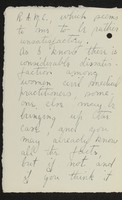 R.A.M.C., which seems
to me to be rather
unsatisfactory.
As I know there is
considerable dissatis-
faction among
women and medical
practitioners some-
one else may be
bringing up the
case, and you
may already know
all the facts
but if not and
if you think it